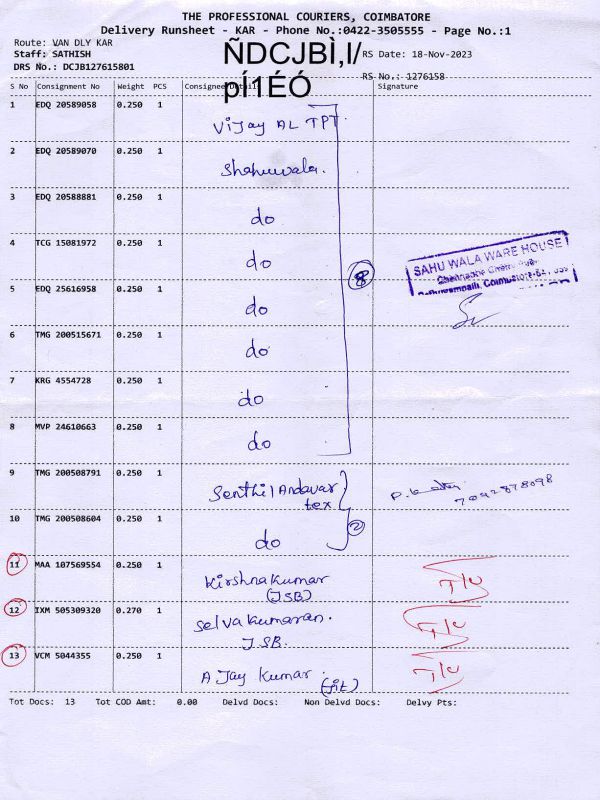 THE PROFESSIONAL COURIERS, COIMBATORE
Delivery Runsheet - KAR - Phone No.:0422-3505555 - Page No.:1
Route: VAN DLY KAR
Staff: SATHISH
DRS No.: DCJB127615801
ÑDCJBÌ,I/
pÍ1ÉÓ
RS Date: 18-Nov-2023
RS No.: 1276158
S No Consignment No Weight PCS Consignee Details Signature
1 EDQ 20589058 0.250 1 Vijay AL TPT
2 EDQ 20589070 0.250 1 Shahuwala.
3 EDQ 20588881 0.250 1 do
4 TCG 15081972 0.250 1 do
8
SAHU WALA WARE HOUSE
5 EDQ 25616958 0.250 1 do
6 TMG 200515671 0.250 1 do
7 KRG 4554728 0.250 1 do
8 MVP 24610663 0.250 1 do
9 TMG 200508791 0.250 1 Senthil Andavar
tex
7092878098
10 TMG 200508604 0.250 1 do
2
11 MAA 107569554 0.250 1 Kirshnakumar
(JSB)
12 IXM 505309320 0.270 1 Selvakumaran.
JSB.
13 VCM 5044355 0.250 1 AJay Kumar.
Tot Docs: 13 Tot COD Amt: 0.00 Delvd Docs: Non Delvd Docs: Delvy Pts: